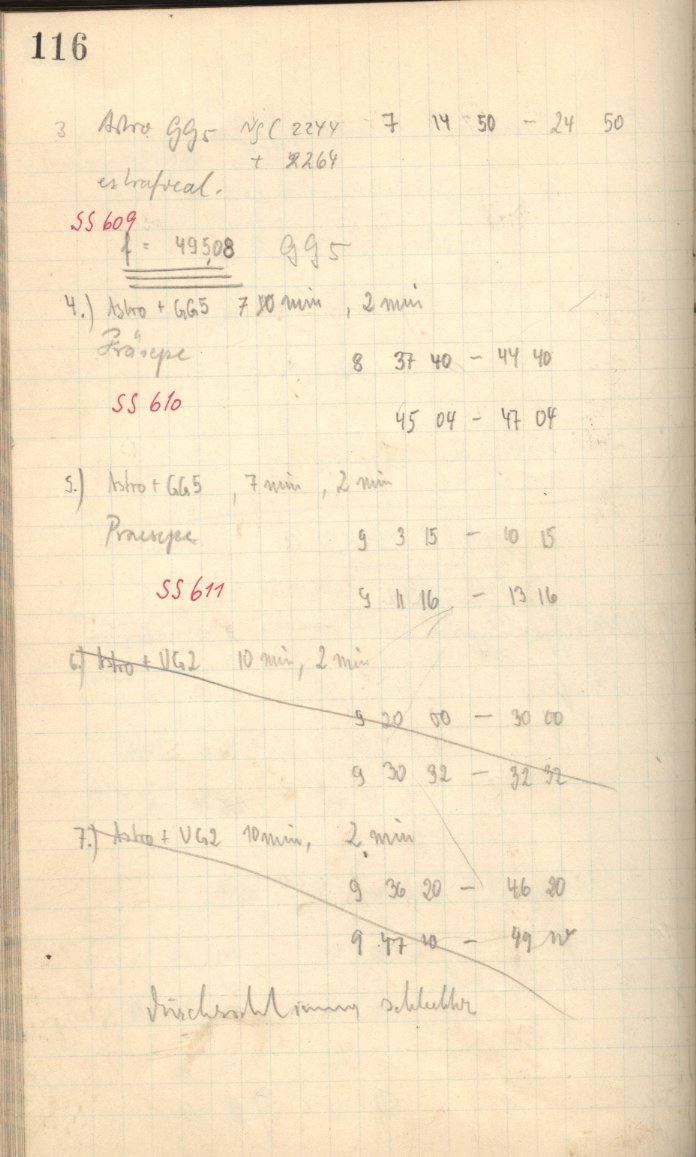 116
3 Astro GG5 NGC 2244 7 14 50 - 24 50
+ 2264
extrafocal.
SS 609
f = 49508 GG5
4.) Astro + GG5 7 min, 2 min
Präsepe 8 37 40 - 44 40
SS 610 45 04 - 47 04
5.) Astro + GG5, 7 min, 2 min
Praesepe 9 3 15 - 10 15
SS 611 9 11 16 - 13 16
6.) Astro + UG2 10 min, 2 min
9 20 00 - 30 00
9 30 32 - 32 32
7.) Astro + UG2 10 min, 2 min
9 36 20 - 46 20
9 47 10 - 49 10
schlechter